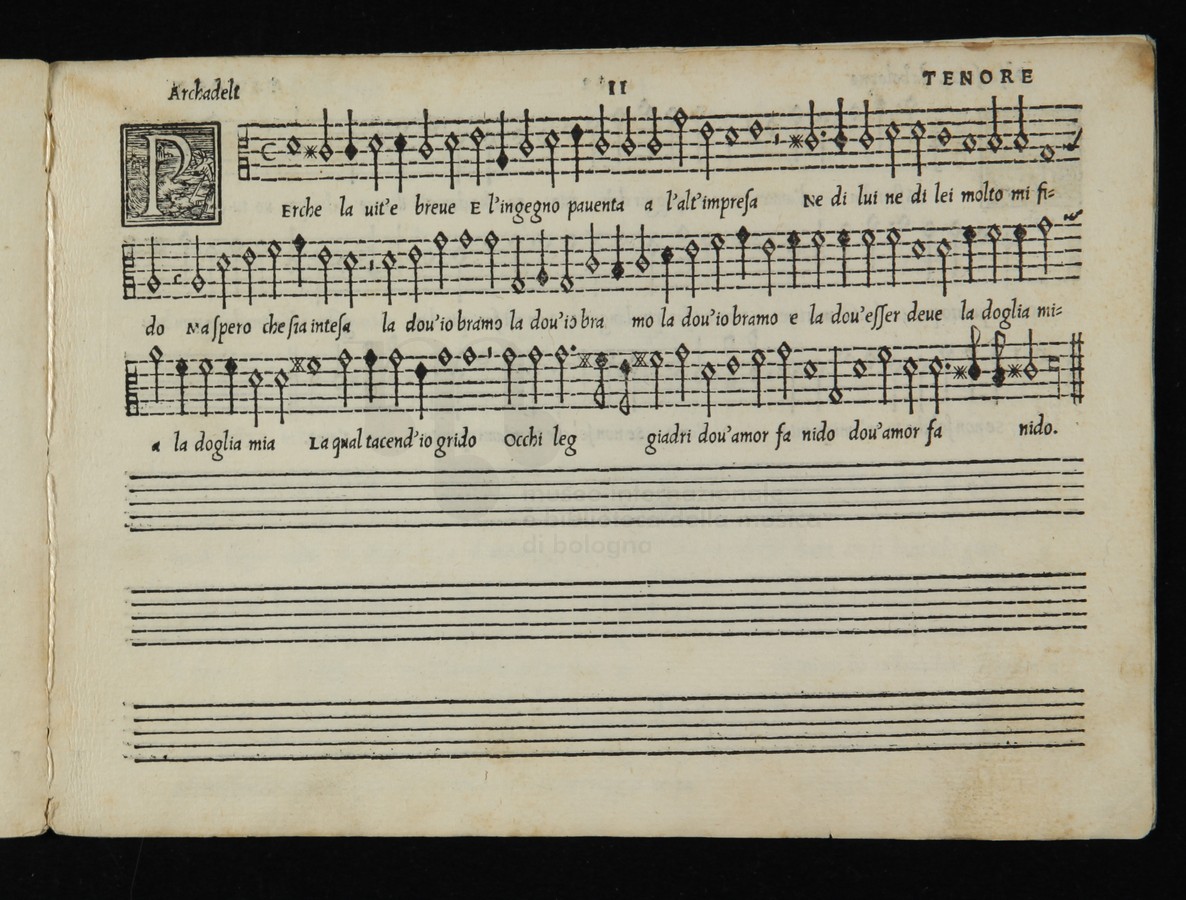 Archadelt II TENORE
P Erche la uit'e breue E l'ingegno pauenta a l'alt'impresa Ne di lui ne di lei molto mi fi=
do Ma spero che sia intesa la dou'io bramo la dou'io bra mo la dou'io bramo e la dou'esser deue la doglia mi=
a la doglia mia La qual tacend'io grido Occhi leg giadri dou'amor fa nido dou'amor fa nido.
di bologna